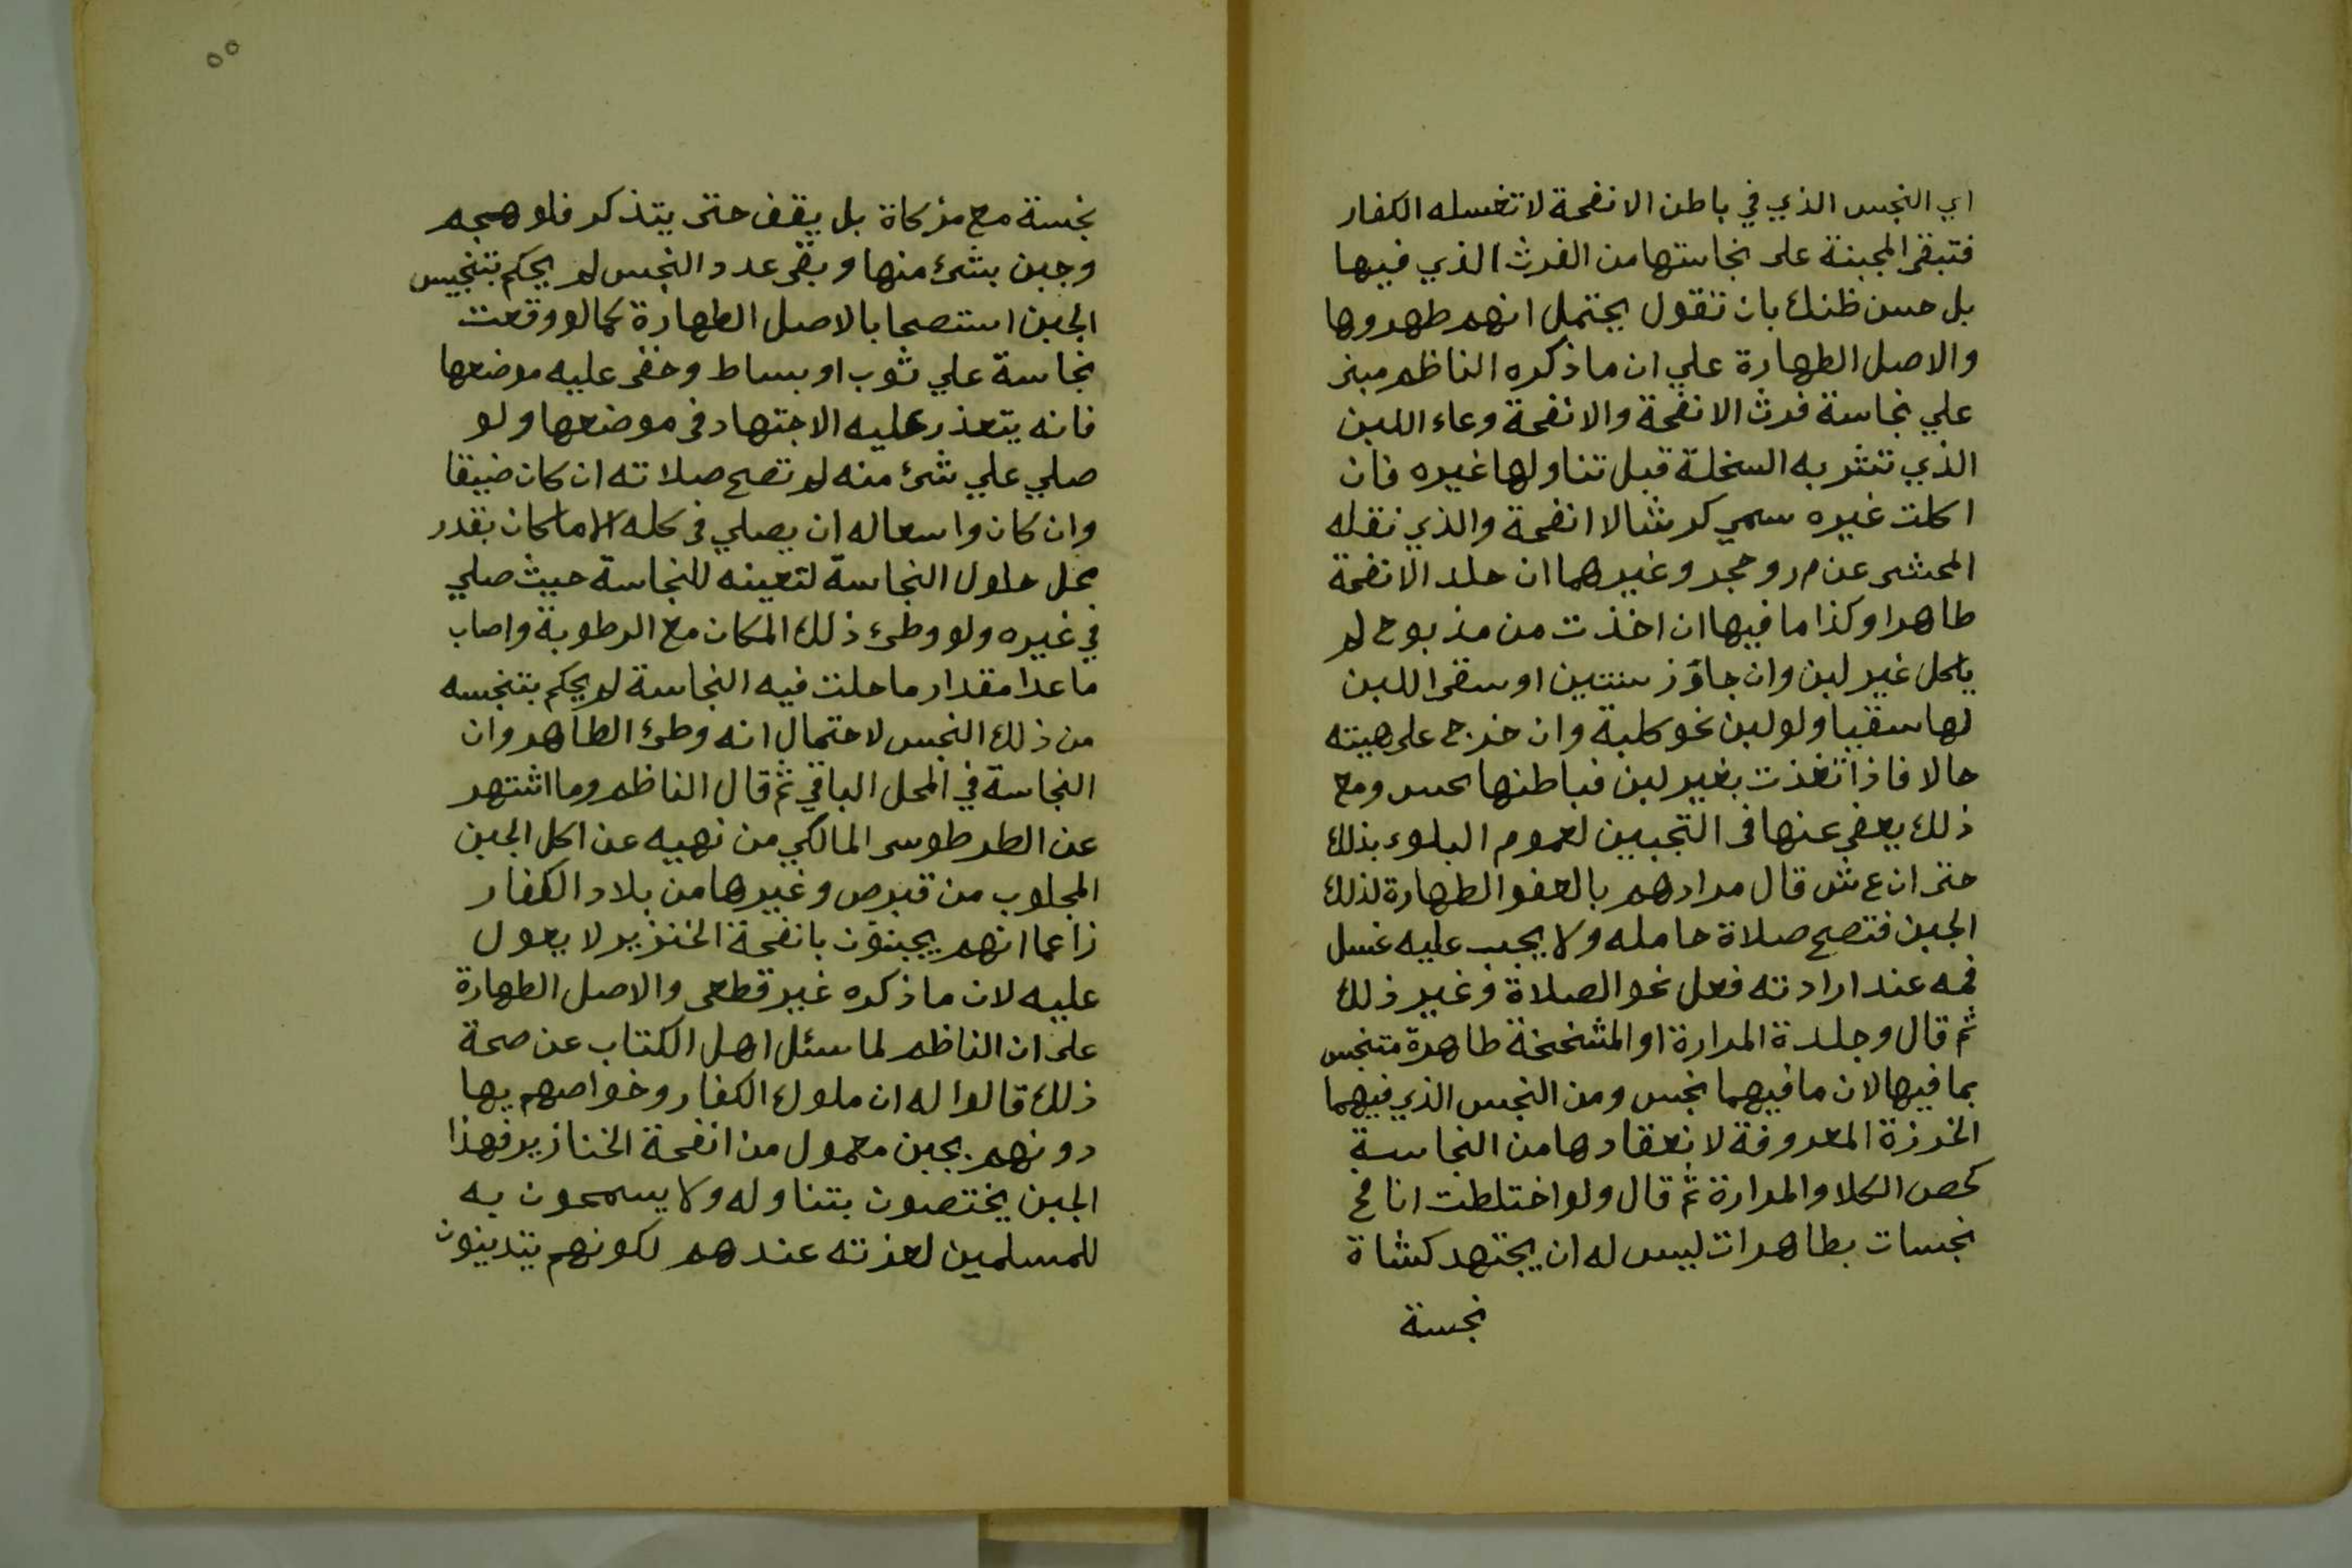 اي النجس الذي في باطن الانفحة لا تغسله الكفار
فتبقى المجبنة على نجاستها من الفرث الذي فيها
بل حسن ظنك بان تقول يحتمل انهم طهروها
والاصل الطهارة علي ان ما ذكره الناظم مبنى
علي نجاسة فرث الانفحة والانفحة وعاء اللبن
الذي تشربه السخلة قبل تناولها غيره فان
اكلت غيره سمي كرشا لا انفحة والذي نقله
المحشى عن م ر و حجر وغيرهما ان جلد الانفحة
طاهرا وكذا ما فيها ان اخذت من مذبوح لم
ياكل غير لبن وان جاوز سنتين او سقى اللبن
لها سقيا ولو لبن نحو كلبة وان خرج على هيئته
حالا فاذا تغذت بغير لبن فباطنها نجس ومع
ذلك يعفى عنها فى التجبين لعموم البلوى بذلك
حتى ان ع ش قال مرادهم بالعفو الطهارة لذلك
الجبن فتصح صلاة حامله ولا يجب عليه غسل
فمه عند ارادته فعل نحو الصلاة وغير ذلك
ثم قال وجلدة المرارة او المشخخة طاهرة متنجس
بما فيها لان ما فيهما نجس ومن النجس الذي فيهما
الخرزة المعروفة لانعقادها من النجاسة
كحص الكلا والمرارة ثم قال ولو اختلطت انافح
نجسات بطاهرات ليس له ان يجتهد كشاة
نجسة
٥٥
نجسة مع مزكاة بل يقف حتى يتذكر فلو هجم
وجبن بشئ منها وبقى عدد النجس لم يحكم بتنجيس
الجبن استصحابا لاصل الطهارة كما لو وقعت
نجاسة علي ثوب او بساط وخفى عليه موضعها
فانه يتعذر عليه الاجتهاد فى موضعها ولو
صلي علي شئ منه لم تصح صلاته ان كان ضيقا
وان كان واسعا له ان يصلي فى كله الا ما كان بقدر
محل حلول النجاسة لتعينه للنجاسة حيث صلي
في غيره ولو وطئ ذلك المكان مع الرطوبة واصاب
ما عدا مقدار ما حلت فيه النجاسة لم يحكم بتنجسه
من ذلك النجس لاحتمال انه وطئ الطاهر وان
النجاسة في المحل الباقي ثم قال الناظم وما اشتهر
عن الطرطوسى المالكي من نهيه عن اكل الجبن
المجلوب من قبرص وغيرها من بلاد الكفار
زاعما انهم يجبنون بانفحة الخنزير لا يعول
عليه لان ما ذكره غير قطعى والاصل الطهارة
على ان الناظم لما سئل اهل الكتاب عن صحة
ذلك قالوا له ان ملوك الكفار وخواصهم يها
دونهم بجبن معمول من انفحة الخنازير فهذا
الجبن يختصون بتناوله ولا يسمحون به
للمسلمين لعزته عندهم لكونهم يتدينون